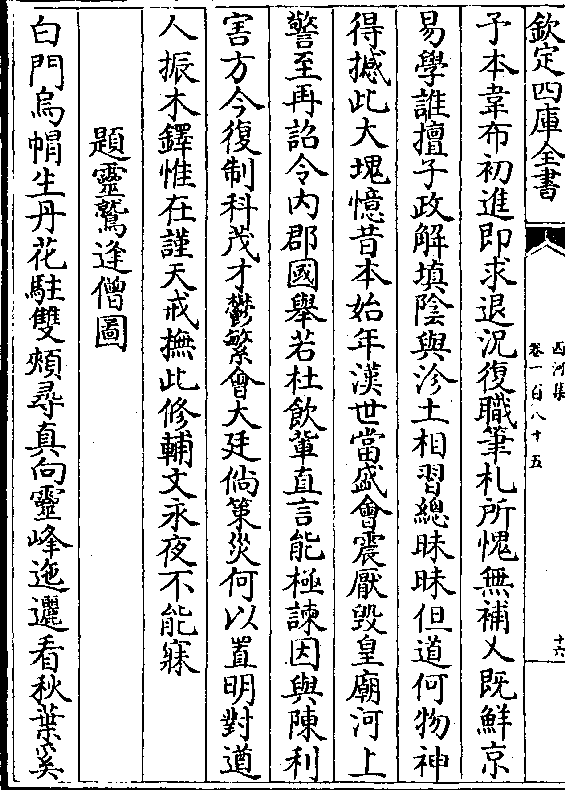 欽定四庫全書
西河集
卷一百八十五
十六
予本韋布初進即求退況復職筆札所愧無補乂既鮮京
易學誰擅子政解填陰與沴土相習總昧昧但道何物神
得撼此大塊憶昔本始年漢世當盛會震厭毀皇廟河上
警至再詔令內郡國舉若杜飲軰直言能極諫因與陳利
害方今復制科茂才鬱繁會大廷倘策災何以置明對遒
人振木鐸惟在謹天戒撫此修輔文永夜不能寐
題靈鷲逢僧圖
白門烏帽生丹花駐雙頰尋真向靈峰迤邐看秋葉奚